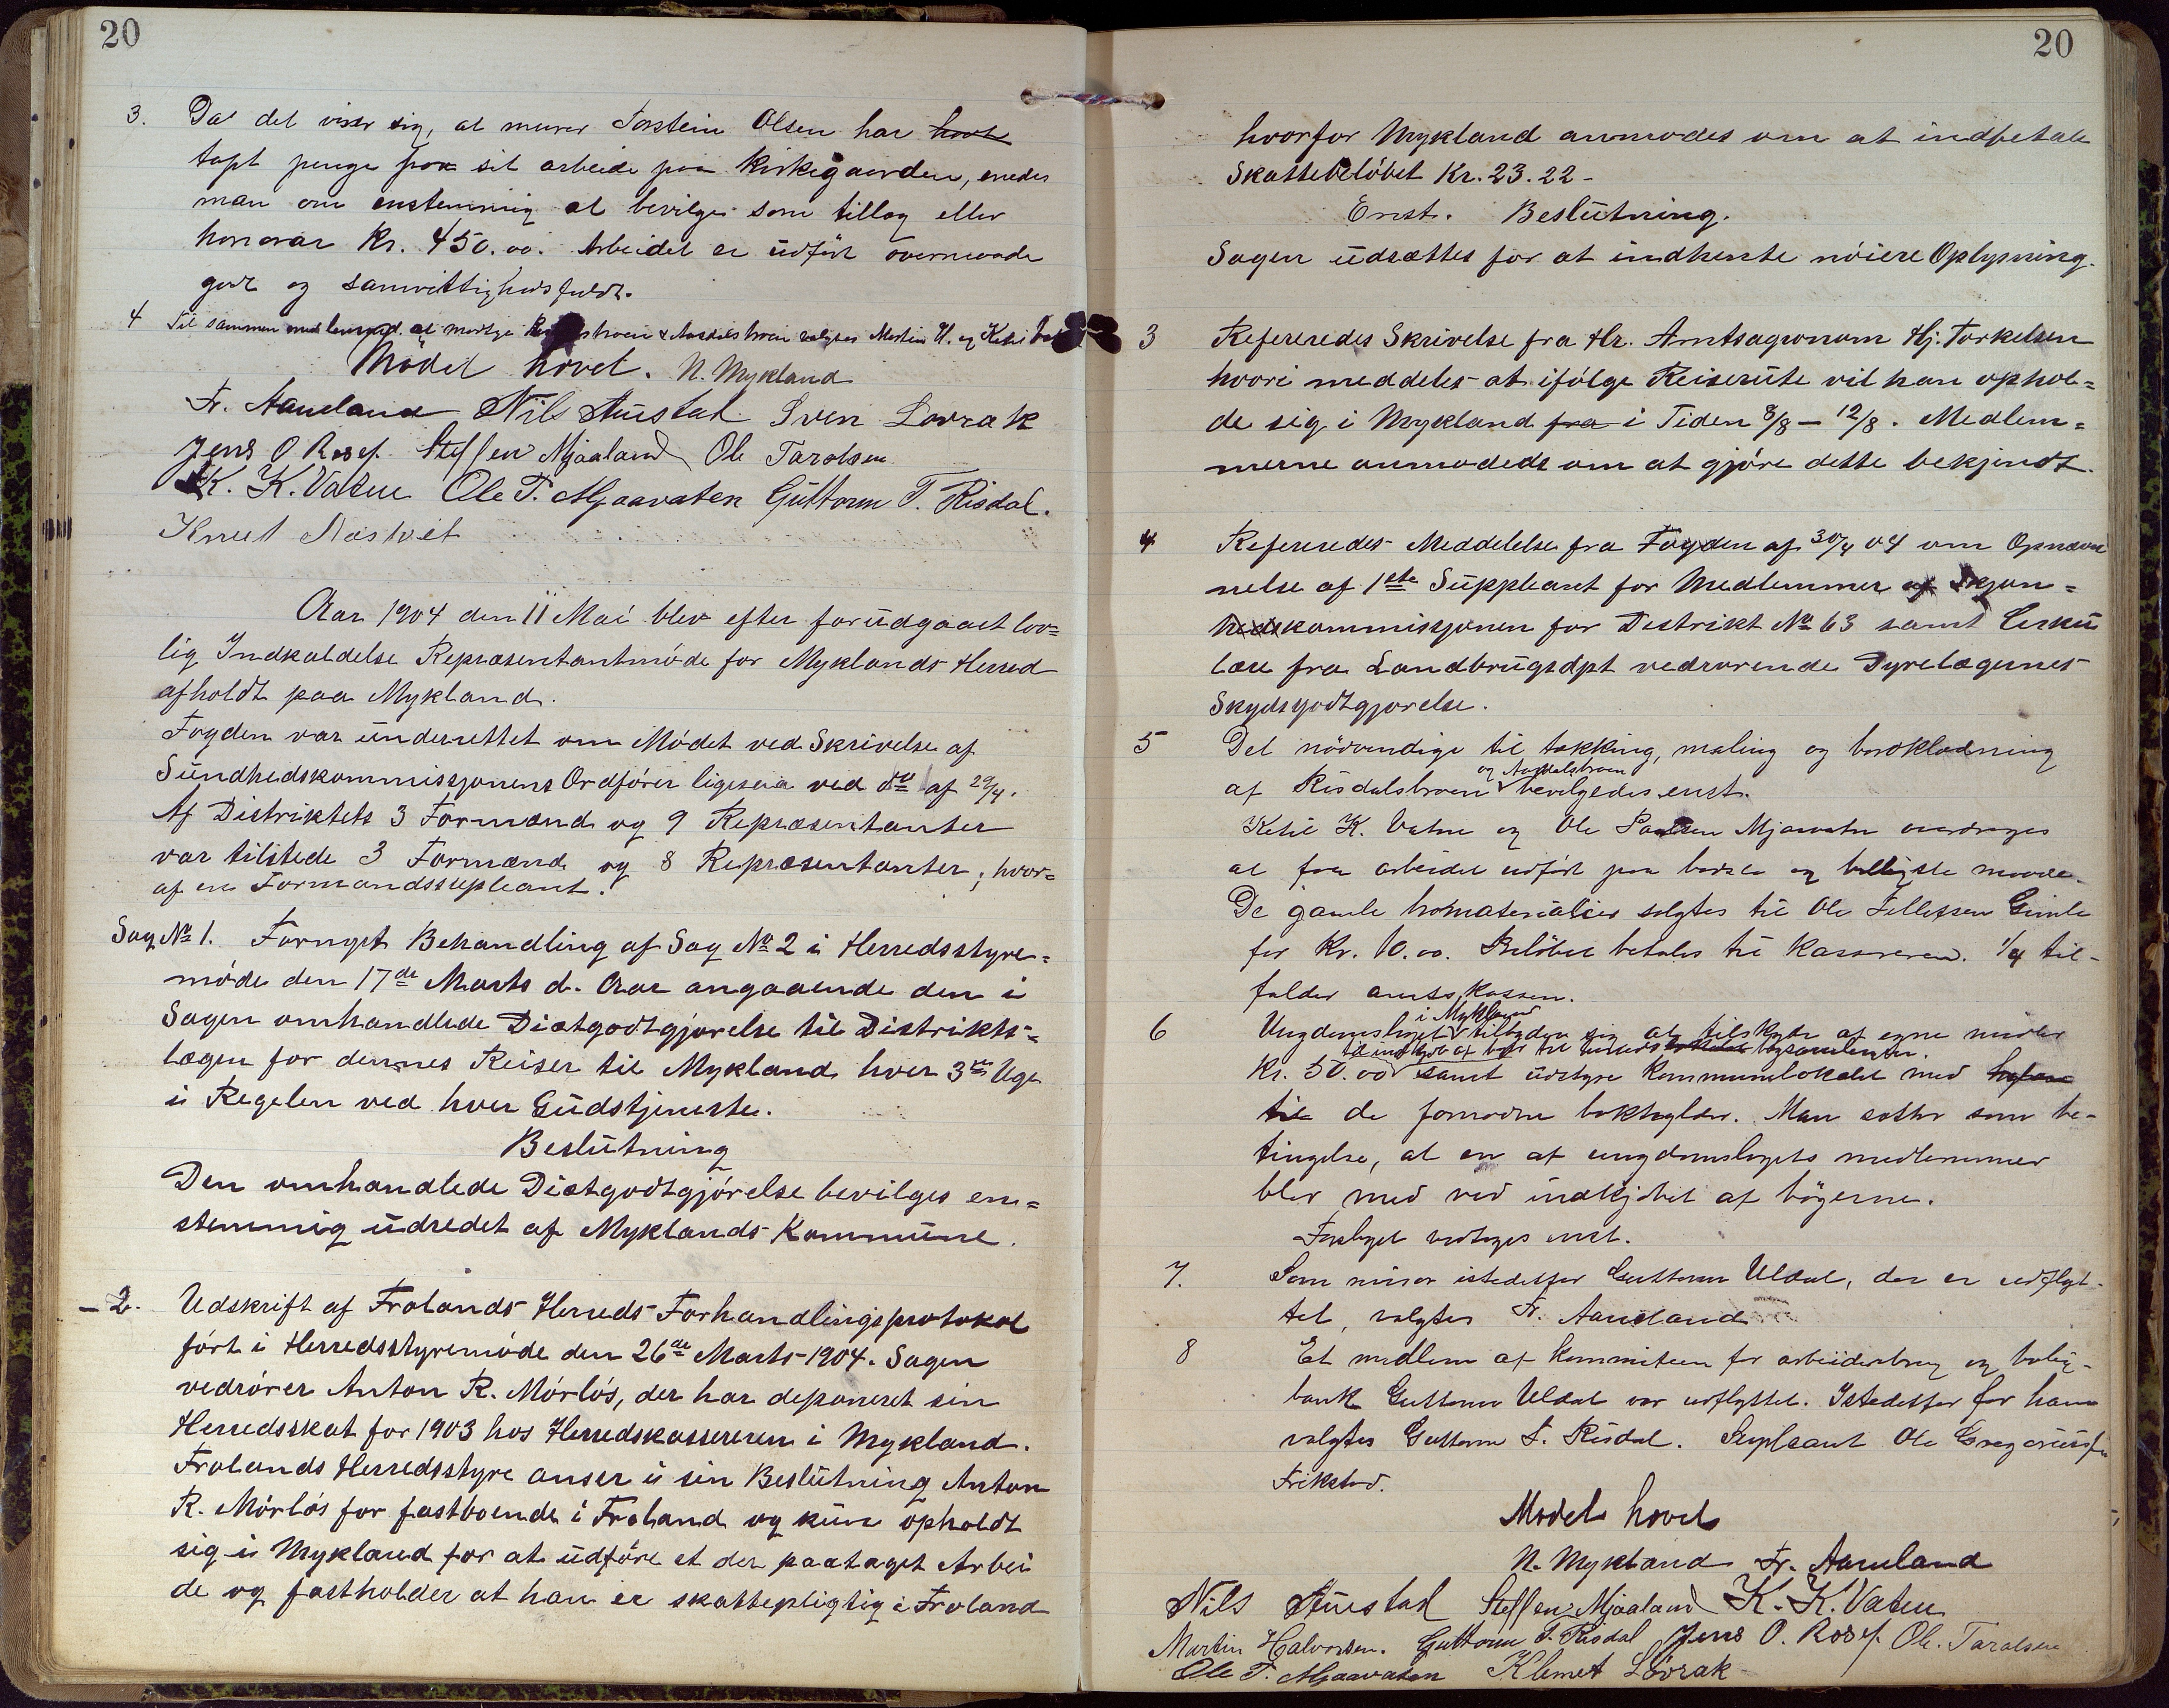 20
3. Da det viser sig, at murer Torstein Olsen har
tapt penge paa sit arbeide paa Kirkegaarden, enedes
man om enstemmig at bevilge som tillæg eller
honorar Kr. 450.00. Arbeidet er udført overmaade
godt og samvittighedsfuldt.
4 Til sammen med lensmd. at modtage & Aasdalsbroen valgtes Martin H. og Ketil
Mødet hævet. N. Mykland
Fr. Aaneland Nils Austad Sven Lovrak
Jens O Rosef. Steffen Mjaaland Ole Taralsen
K. K. Vatne Ole T. Mjaavaten Guttorm T. Risdal.
Knut Næstvet
Aar 1904 den 11 Mai blev efter forudgaaet lov=
lig Indkaldelse Repræsentantmøde for Myklands Herred
afholdt paa Mykland.
Fogden var underrettet om Mødet ved Skrivelse af
Sundhedskommissjonens Ordfører ligesaa ved do af 29/4.
Af Distriktets 3 Formænd og 9 Repræsentanter
var tilstede 3 Formænd og 8 Repræsentanter, hvor=
af en Formandssupleant.
Sag No 1. Fornyet Behandling af Sag No 2 i Herredsstyre=
møde den 17de Marts d. Aar angaaende den i
Sagen omhandlede Diætgodtgjørelse til Distrikts=
lægen for dennes Reiser til Mykland hver 3die Uge
i Regelen ved hver Gudstjeneste.
Beslutning
Den omhandlede Diætgodtgjørelse bevilges en=
stemmig udredet af Myklands Kommune.
- 2. Udskrift af Frolands Herreds Forhandlingsprotokol
ført i Herredsstyremøde den 26de Marts 1904. Sagen
vedrører Anton R. Mørløs, der har deponeret sin
Herredsskat for 1903 hos Herredskassereren i Mykland.
Frolands Herredsstyre anser i sin Beslutning Anton
R. Mørløs for fastboende i Froland og kun opholdt
sig i Mykland for at udføre et der paataget Arbei
de og fastholder at han er skattepligtig i Froland
20
hvorfor Mykland anmodes om at indbetale
Skattebeløbet Kr. 23.22-
Enst. Beslutning.
Sagen udsættes for at indhente nøiere Oplysning.
3 Refereredes Skrivelse fra Hr. Amtsagronom Hj. Torkelsen
hvori meddeles at ifølge Reiserute vil han ophol=
de sig i Mykland fra i Tiden 8/8 - 12/8. Medlem=
merne anmodeds om at gjøre dette bekjendt.
4 Refereredes Meddelelse fra Fogden af 30/4 04 om Opnæv
nelse af 1ste Suppleant for Medlemmer af Skjøn=
kommissjonen for Distrikt No 63 samt Cirku
lære fra Landbrugsdpt vedrørende Dyrelægernes
Skydsgodtgjørelse.
5 Det nødvendige til tækking, maling og bordklædning
og Aasdalsbroen
af Risdalsbroen bevilgedes enst.
Ketil K. Vatne og Ole Mjaavatn overdrages
at faa arbeidet udført paa bedste og billigste maade.
De gamle bromaterialier solgtes til Ole Tellefsen Gimle
for Kr. 10.00. Beløbet betales til Kassereren. 1/4 til-
falder amtskassen.
i Mykland
6 Ungdomslaget tilbyder sig at tilskyde af egne midler
til indkjøb af bøger til bogsamlingen.
Kr. 50.00 samt udstyre Kommunelokalet med
til de fornødne bokhylder. Man sætter som be-
tingelse, at en af ungdomslagets medlemmer
blir med ved indkjøbet af bøgerne.
Forslaget vedtages enst.
7. Som istedetfor Guttorm Uldal, der er udflyt-
tet, valgtes Fr. Aaneland
8 Et medlem af kommiteen for arbeiderbrug og bolig-
bank Guttorm Uldal var udflyttet. Istedetfor for ham
valgtes Guttorm T. Risdal. Supleant Ole Gregoriusen
Frikstad.
Mødet hævet
N. Mykland Fr. Aaneland
Nils Austad Steffen Mjaaland K. K. Vatne
Martin Halvorsen. Guttorm T. Risdal Jens O. Rosef. Ole Taralsen
Ole T. Mjaavaten Klemet Løvrak